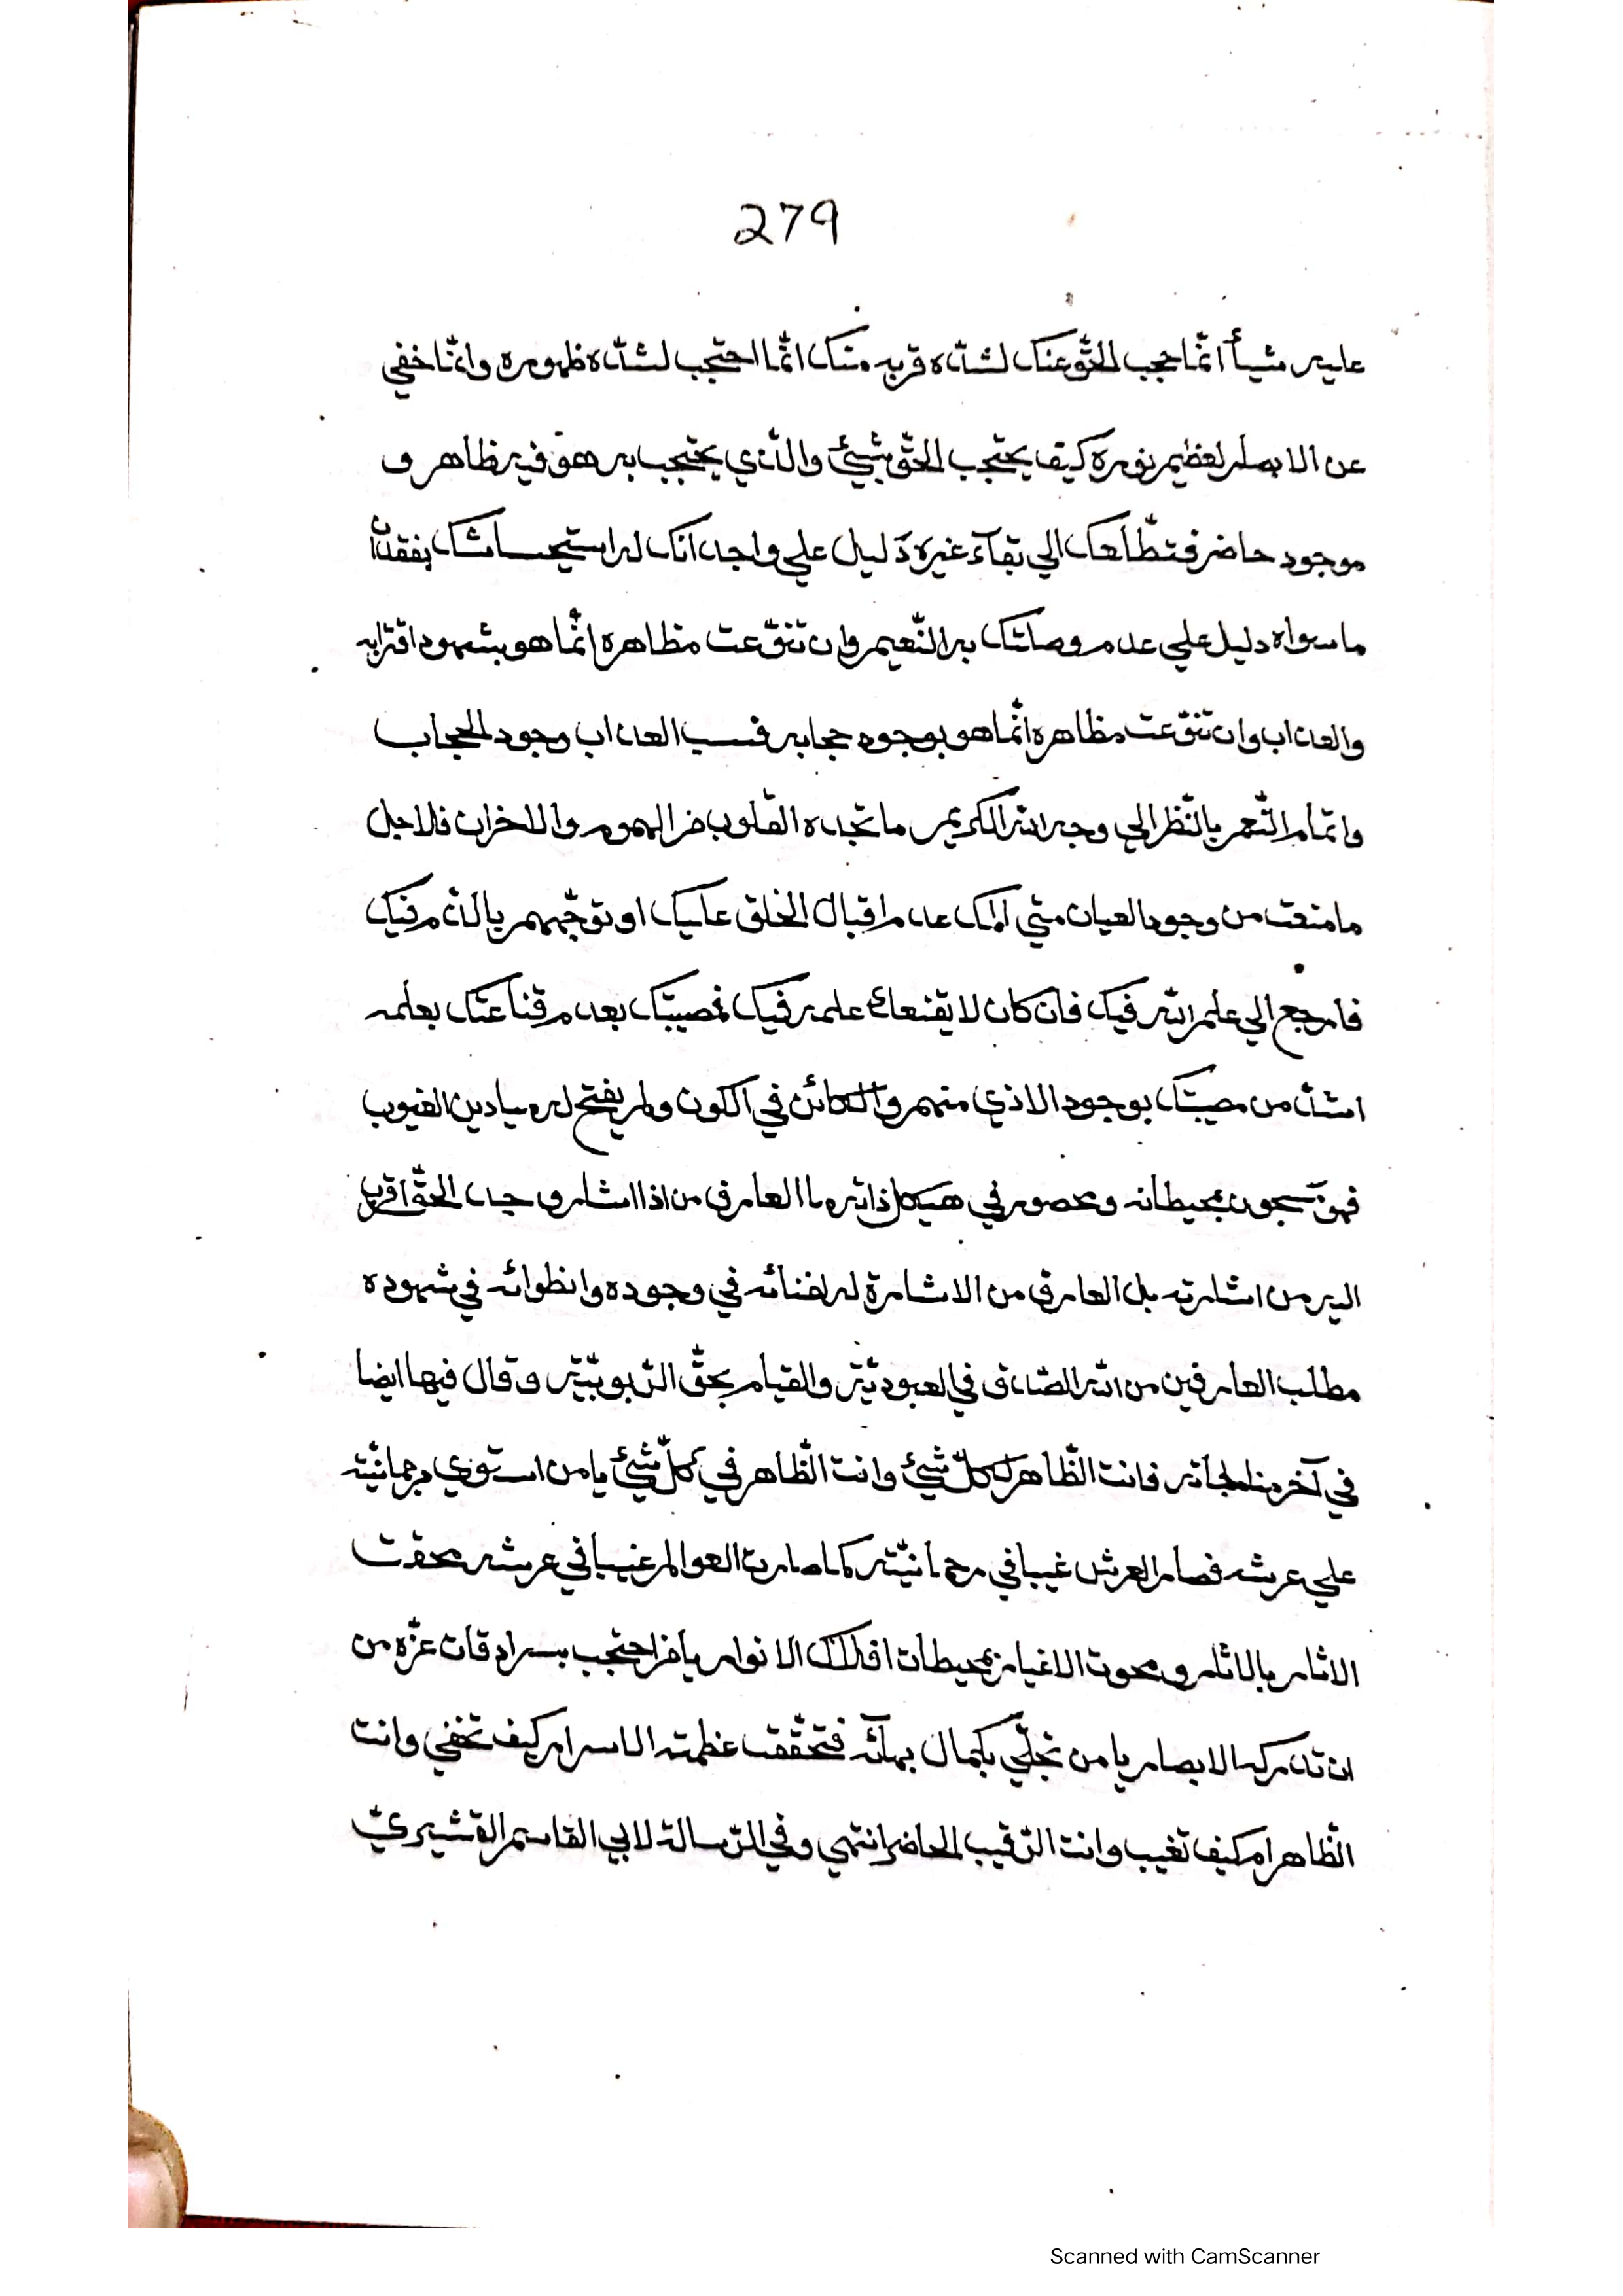 279
عليه شيأ انّما حجب الحقّ عنك لشدّة قربه منك انّما احتجب لشدّة ظهوره وانّما خفي
عن الابصار لعظيم نوره كيف يحتجب الحقّ بشيئ والّذي يحتجب به هو فيه ظاهر و
موجود حاضر فتطلّعك الي بقآء غيره دليل علي واجدانك له استيحاشك بفقدان
ما سواه دليل علي عدم وصلتك به النّعيم وان تنوّعت مظاهره انّما هو بشهود اقترابه
والعذاب وان تنوّعت مظاهره انّما هو بوجود حجابه فسبب العذاب وجود الحجاب
واتمام النّعم بالنّظر الي وجه الله الكريم ما تجده القلوب من الهموم والاخران فلاجل
ما منعت من وجود العيان متي المك عدم اقبال الخلق عليك او توجّههم بالذّم فيك
فارجع الي علم الله فيك فان كان لا يقنعك علمه فيك فمصيبتك بعدم قناعتك بعلمه
اشدّ من مصيبتك بوجود الاذي منهم والكائن في الكون ولم يفتح له ميادين الغيوب
فهو مسجون بمحيطاته ومحصور في هيكل ذاته ما العارف من اذا اشار وجد الحقّ اقرب
اليه من اشارته بل العارف من الاشارة له لفنائه في وجوده وانطوائه في شهوده
مطلب العارفين من الله الصّدق في العبوديّة والقيام بحقّ الرّبوبيّة وقال فيها ايضا
في آخر مناجاته فانت الظّاهر لكلّ شيئ وانت الظّاهر في كلّ شيئ يا من استوي برحمانيّته
علي عرشه فصار العرش غيبا في رحمانيّته كما صارت العوالم غيبا في عرشه محقت
الاثار بالاثار ومحوت الاغيار بمحيطات افلاك الانوار يا من احتجب بسرادقات عزّه من
ان تدركه الابصار يا من تجلّي بكمال بهآئه فتحقّقت عظمته الاسرار كيف تخفي وانت
الظّاهر ام كيف تغيب وانت الرّقيب الحاضر انتهي وفي الرّسالة لابي القاسم القشيريّ
Scanned with CamScanner